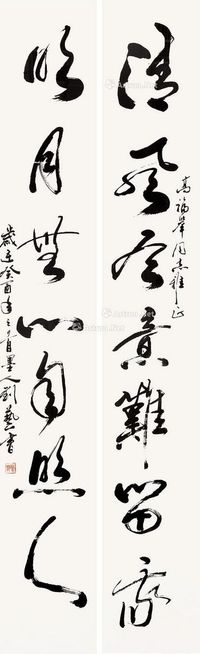 清風有意難留我
高福同志雅正
明月無心自照人
歲在癸酉年之月墨人劉藝書